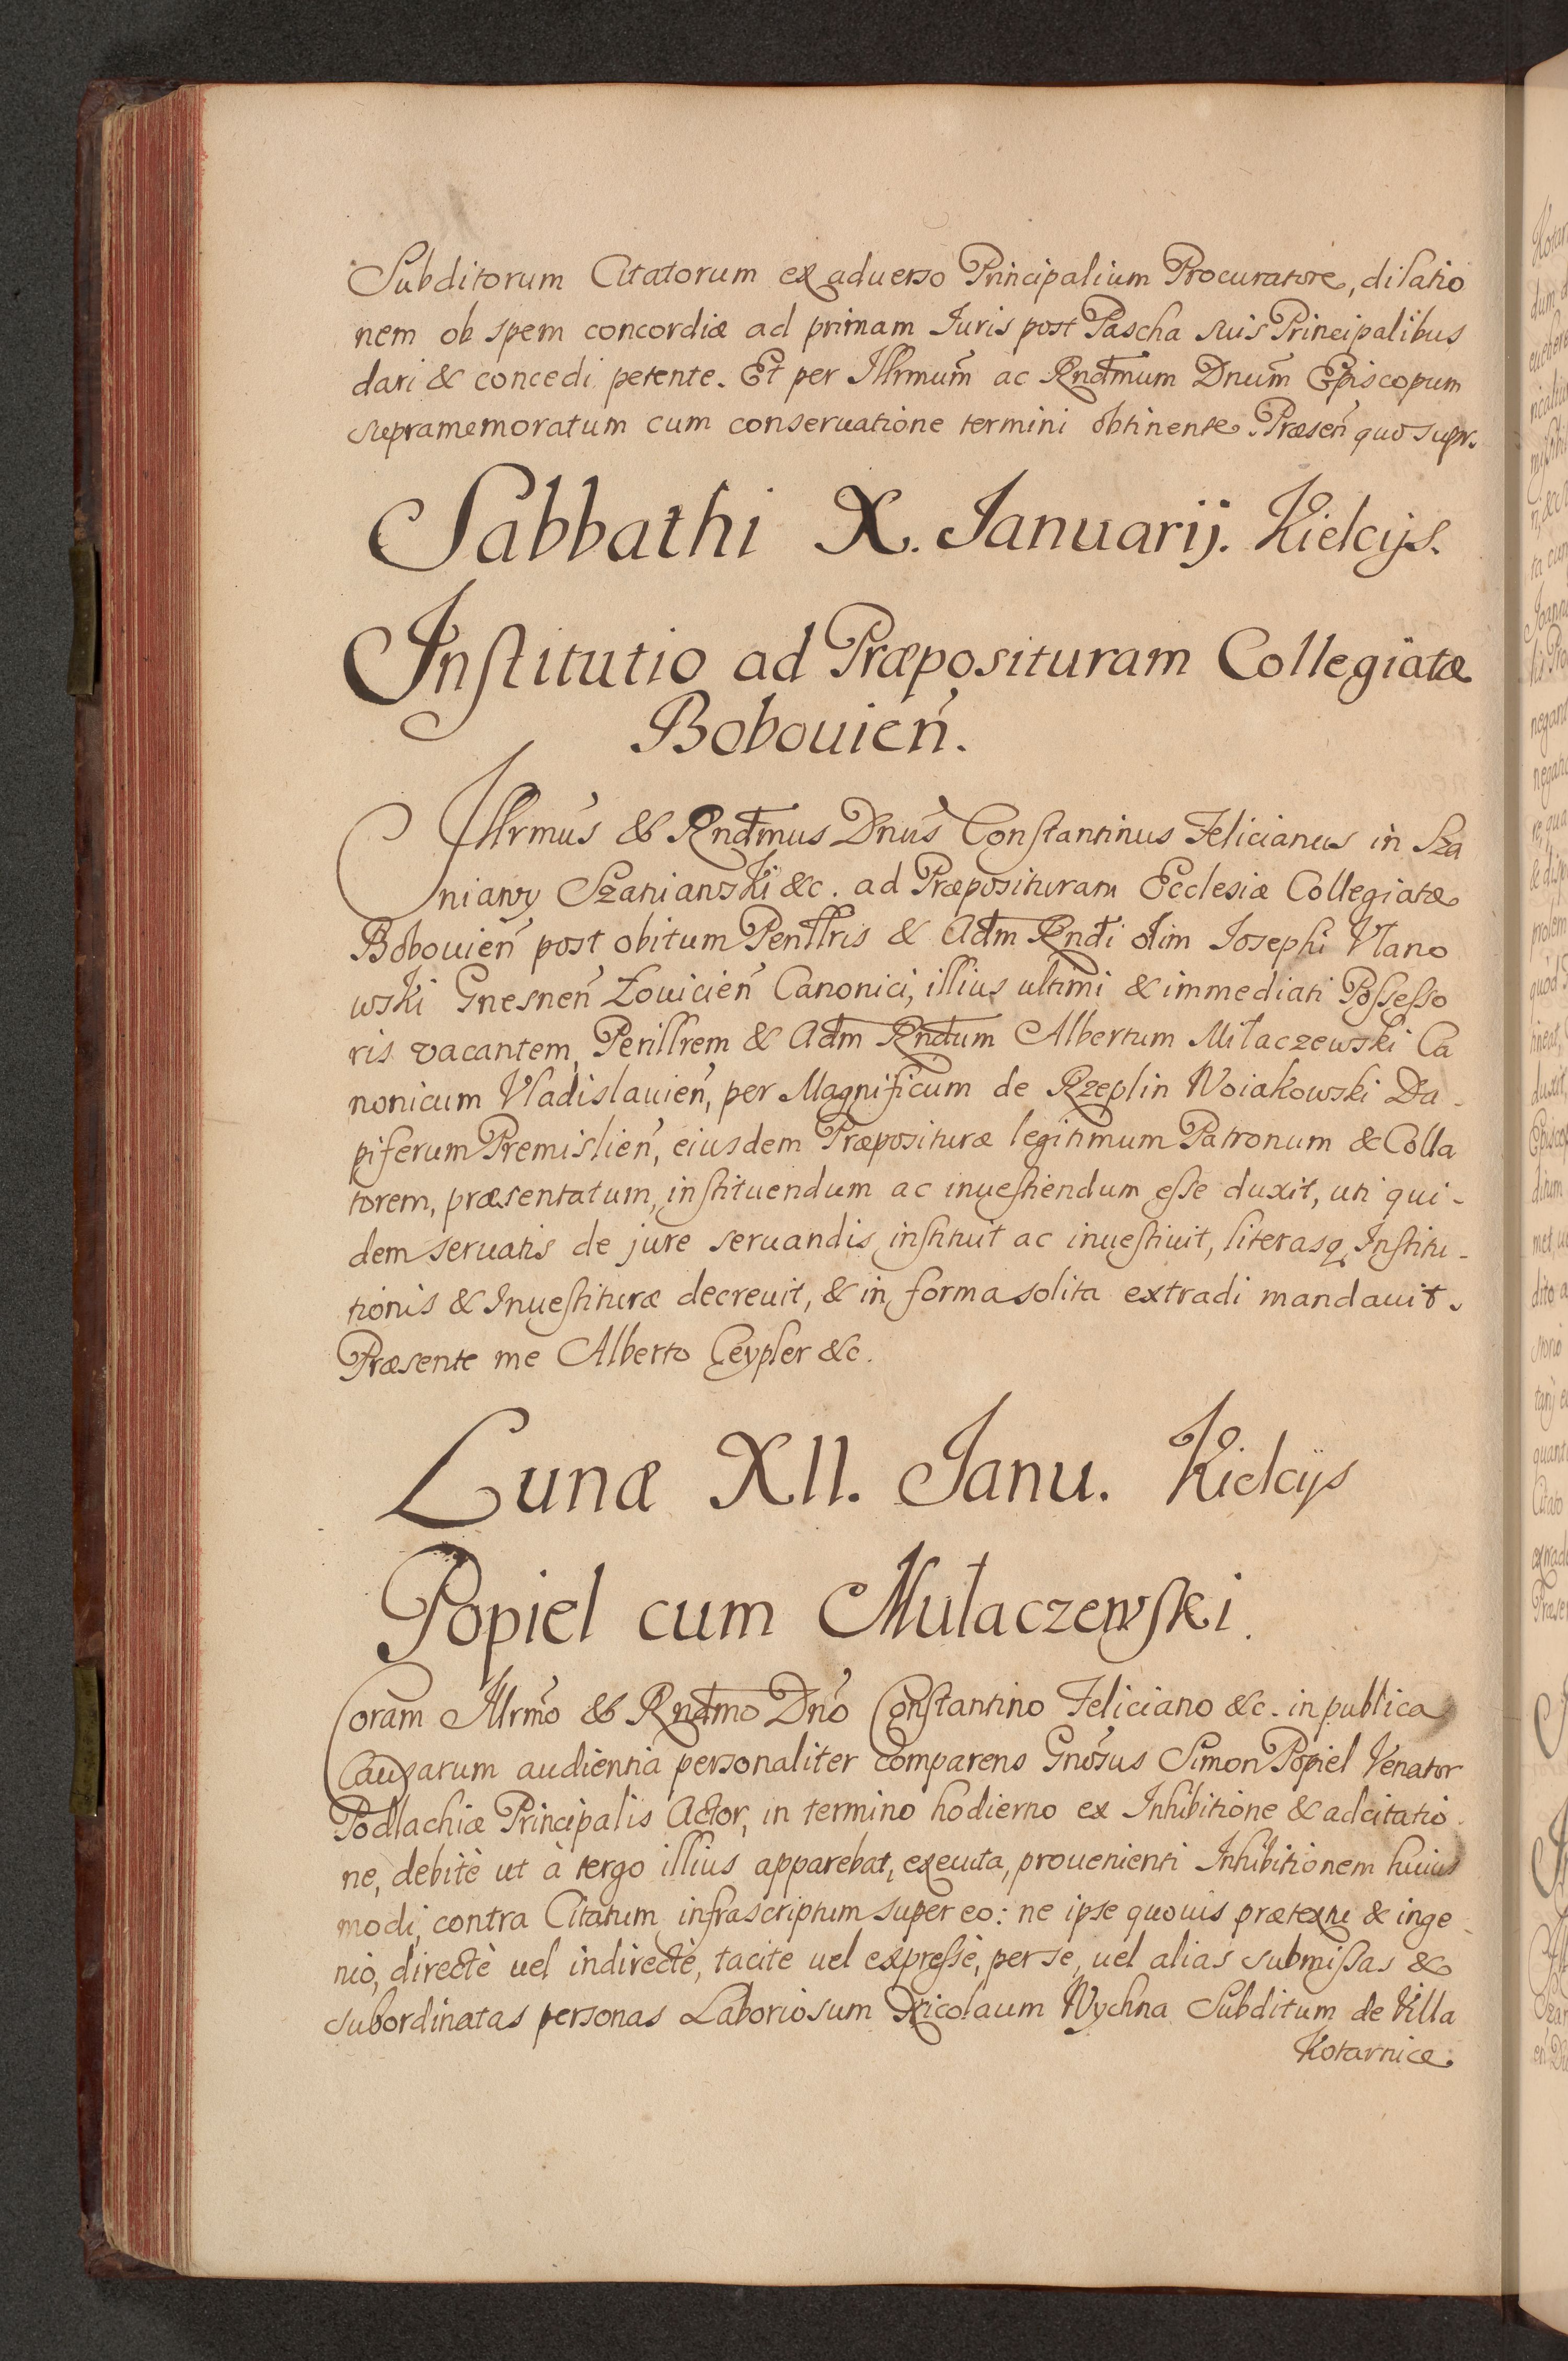 Subditorum Citatorum ex aduerso Principalium Procuratore, dilatio
nem ob spem concordiæ ad primam Iuris post Pascha suis Principalibus
dari & concedi petente. Et per Illrmum̃ ac Rnd̃mum Dnum̃ Episcopum
supramemoratum cum conseruatione termini obtinente. Præsen̄ quo supr.
Sabbathi X. Januarij. Kielcijs.
Institutio ad Præposituram Collegiatæ
Bobouien̄.
Illrmus̃ & Rnd̃mus Dnus̃ Constantinus Felicianus in Sza
niawy Szaniawski &c. ad Præposituram Ecclesiæ Collegiatæ
Bobouien̄ post obitum Perillris & Ad̃m Rnd̃i olim Iosephi Vlano
wski Gnesnen̄ Łouicien̄ Canonici, illius ultimi & immediati Possesso
ris vacantem, Perillrem & Ad̃m Rnd̃um Albertum Miłaczewski Ca
nonicum Vladislauien̄, per Magnificum de Rzeplin Woiakowski Da-
piferum Premislien̄, eiusdem Præposituræ legitimum Patronum & Colla
torem, præsentatum, instituendum ac inuestiendum esse duxit, uti qui-
dem seruatis de jure seruandis instituit ac inuestiuit, literasq Institu-
tionis & Inuestituræ decreuit, & in forma solita extradi mandauit.
Præsente me Alberto Ceypler &c.
Lunæ XII. Janu. Kielcijs
Popiel cum Mułaczewski.
Coram Illrmo̊ & Rnd̃mo Dno̊ Constantino Feliciano &c. in publica
Causarum audientia personaliter comparens Gnosus Simon Popiel Venator
Podlachiæ Principalis Actor, in termino hodierno ex Inhibitione & adcitatio-
ne, debitè ut à tergo illius apparebat, executa, prouenienti Inhibitionem huius
modi, contra Citatum infrascriptum super eo: ne ipse quouis prætextu & inge-
nio, directè uel indirectè, tacite uel expressè, per se, uel alias submissas &
subordinatas personas Laboriosum Nicolaum Wychna Subditum de Villa
Kotarnice.